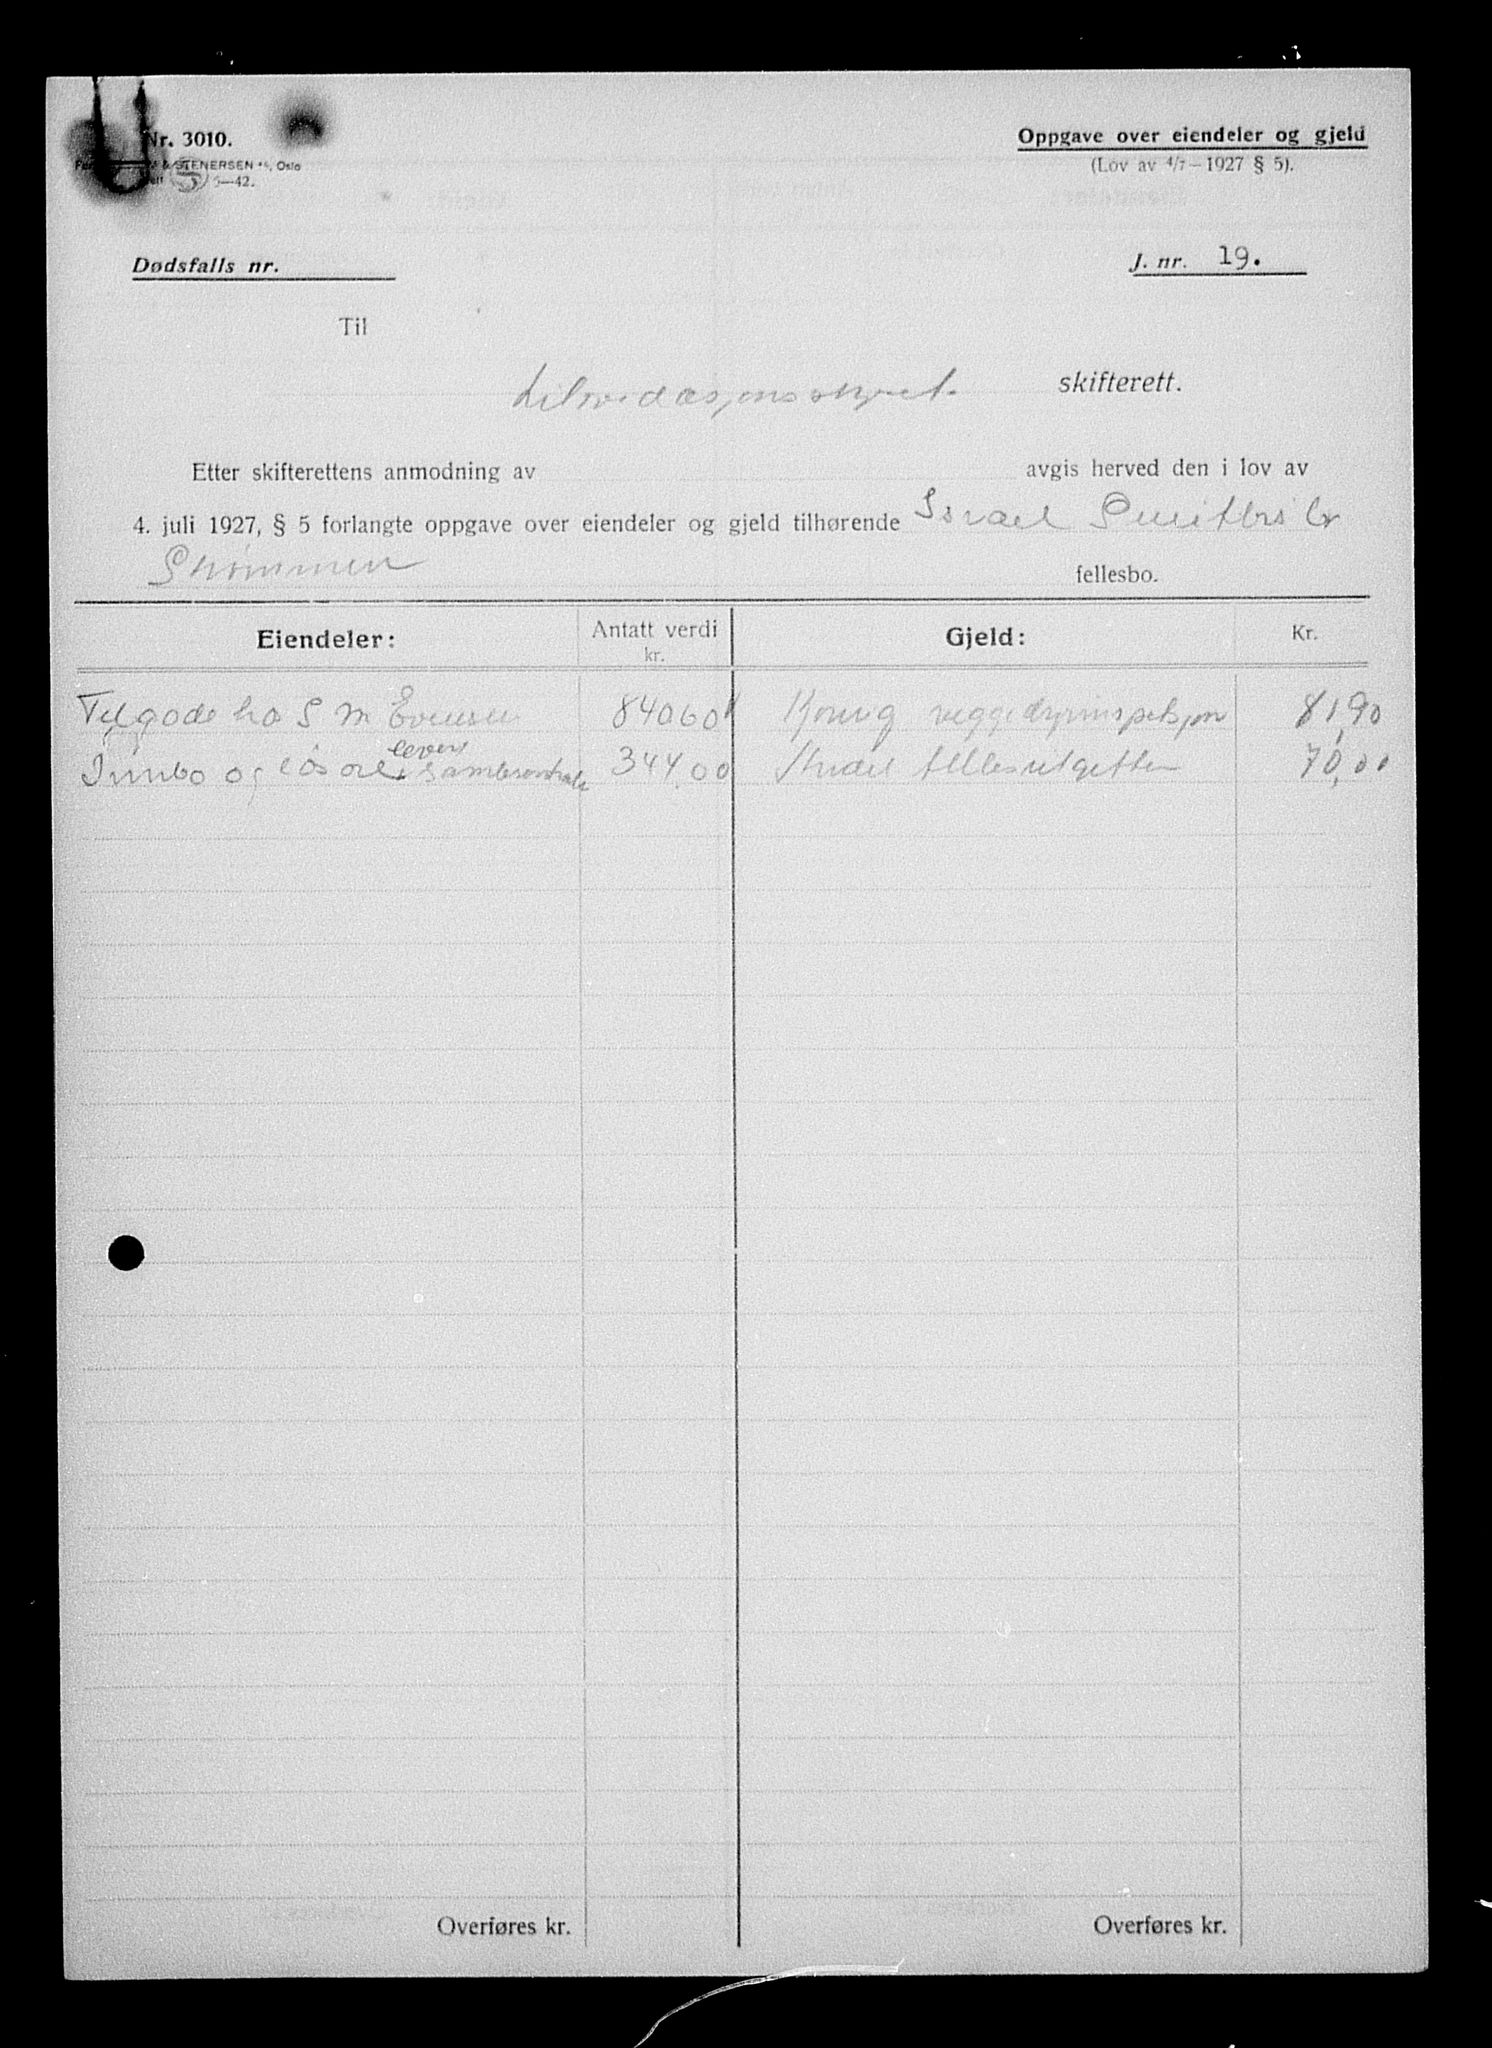 Nr. 3010.
& STENERSEN A/S, Oslo
5—42.
Oppgave over eiendeler og gjeld
(Lov av 4/7 – 1927 § 5).
Dødsfalls nr.
J. nr. 19.
Til
skifterett.
Etter skifterettens anmodning av avgis herved den i lov av
4. juli 1927, § 5 forlangte oppgave over eiendeler og gjeld tilhørende Israel
Strømmen fellesbo.
Eiendeler: Antatt verdi kr. Gjeld: Kr.
Tilgode hos S M Evensen 840 60 81,90
Innbo og løsøre levert 344.00 70,00
Overføres kr. Overføres kr.